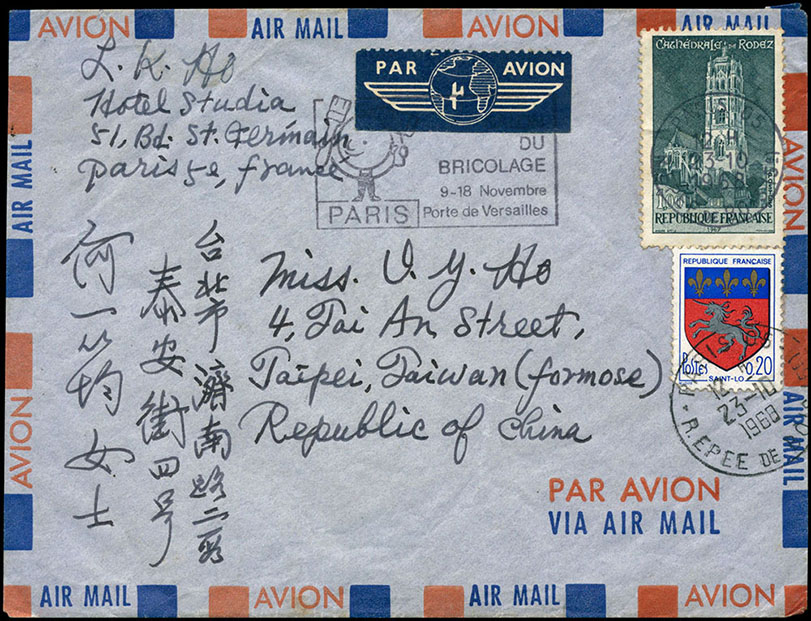 AVION AIR MAIL AVION AIR MAIL
L. K. Ho
Hotel Studia
51, Bd. St. Germain
Paris 5e, France
PAR AVION
DU
BRICOLAGE
9-18 Novembre
PARIS
Porte de Versailles
CATHÉDRALE DE RODEZ
12H
23-10
1968
1,00
REPUBLIQUE FRANÇAISE
1967
REPUBLIQUE FRANÇAISE
POSTES
0,20
SAINT-LO
PARIS
23-10
1968
R. EPEE DE
Miss. V. Y. Ho
4, Tai An Street,
Taipei, Taiwan (formose)
Republic of China
台北市濟南路二段
泰安街四号
何一筠女士
PAR AVION
VIA AIR MAIL
AIR MAIL
AVION
AIR MAIL
AIR MAIL AVION AIR MAIL AVION